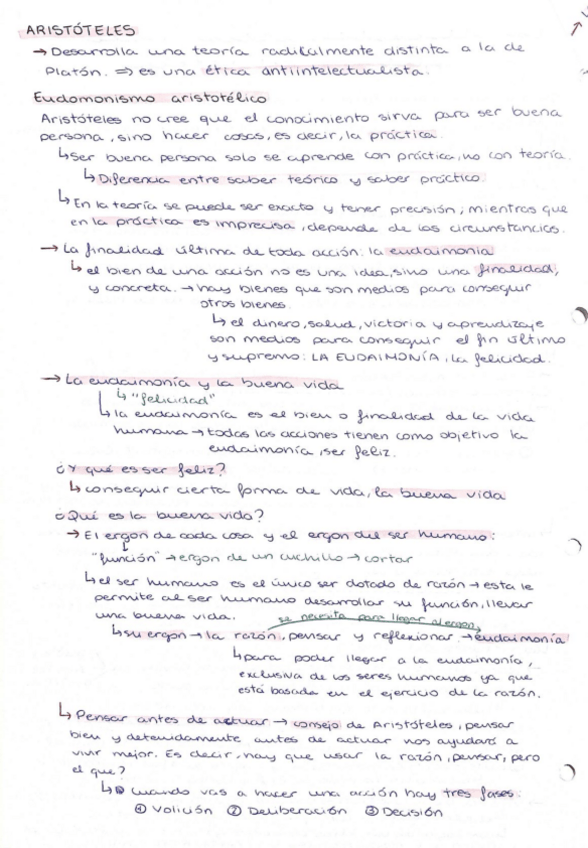 ARISTÓTELES
→ Desarrolla una teoría radicalmente distinta a la de
Platón. ⇒ es una ética antiintelectualista.
Eudomonismo aristotélico
Aristóteles no cree que el conocimiento sirva para ser buena
persona, sino hacer cosas, es decir, la práctica.
↳ Ser buena persona solo se aprende con práctica, no con teoría.
↳ Diferencia entre saber teórico y saber práctico.
↳ En la teoría se puede ser exacto y tener precisión, mientras que
en la práctica es imprecisa, depende de las circunstancias.
→ La finalidad última de toda acción: la eudaimonia
↳ el bien de una acción no es una idea, sino una finalidad,
y concreta. → hay bienes que son medios para conseguir
otros bienes.
↳ el dinero, salud, victoria y aprendizaje
son medios para conseguir el fin último
y supremo: LA EUDAIMONÍA, la felicidad.
→ La eudaimonía y la buena vida
↳ "felicidad"
↳ la eudaimonía es el bien o finalidad de la vida
humana → todas las acciones tienen como objetivo la
eudaimonía, ser feliz.
¿Y qué es ser feliz?
↳ conseguir cierta forma de vida, la buena vida
¿Qué es la buena vida?
→ El ergon de cada cosa y el ergon del ser humano:
"función" → ergon de un cuchillo → cortar
↳ el ser humano es el único ser dotado de razón → esta le
permite al ser humano desarrollar su función, llevar
una buena vida.
se necesita para llegar al ergon
↳ su ergon → la razón, pensar y reflexionar. → eudaimonía
↳ para poder llegar a la eudaimonía,
exclusiva de los seres humanos ya que
está basada en el ejercicio de la razón.
↳ Pensar antes de actuar → consejo de Aristóteles, pensar
bien y detenidamente antes de actuar nos ayudará a
vivir mejor. Es decir, hay que usar la razón, pensar, pero
el que?
↳ Cuando vas a hacer una acción hay tres fases:
① Volición ② Deliberación ③ Decisión